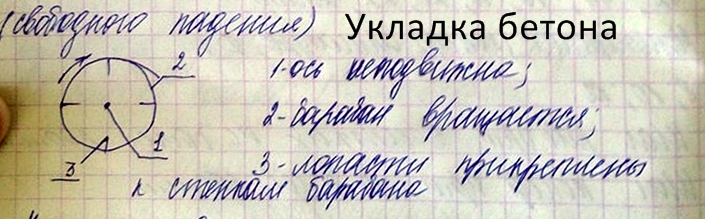 (свободного падения) Укладка бетона
2 1-ось неподвижна;
2-барабан вращается;
1
3 3-лопасти прикреплены
к стенкам барабана